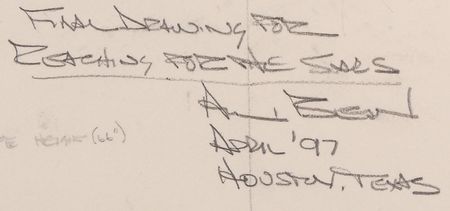 FINAL DRAWING FOR
REACHING FOR THE STARS
BEAN
APRIL '97
(66")
HOUSTON, TEXAS